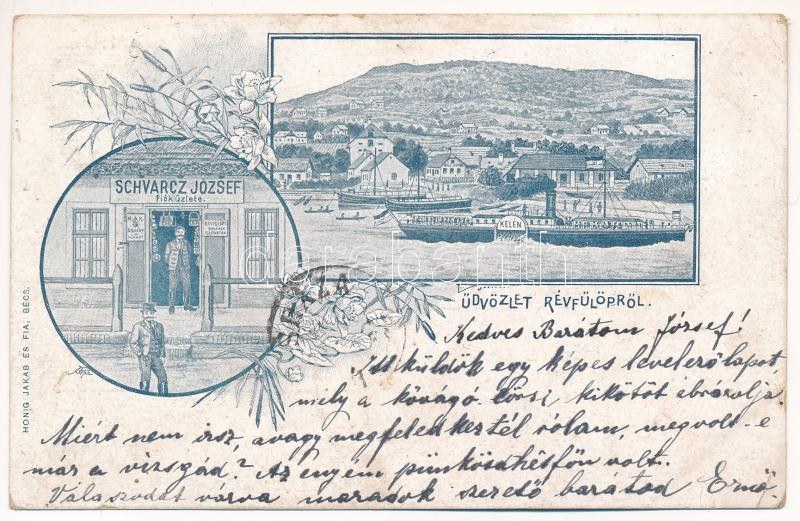 SCHVARCZ JÓZSEF
Fióküzlete.
KELÉN
ÜDVÖZLET RÉVFÜLÖPRŐL.
HONIG JAKAB ÉS FIA, BÉCS.
Kedves Barátom József!
Itt küldök egy képes levelező lapot,
mely a kővágó-örsi kikötőt ábrázolja
Miért nem irsz, avagy megfeledkeztél rólam, megvolt-e
már a vizsgád? Az enyém pünkösdhétfőn volt.
Válaszodat várva maradok szerető barátod Ernő.
darabanth